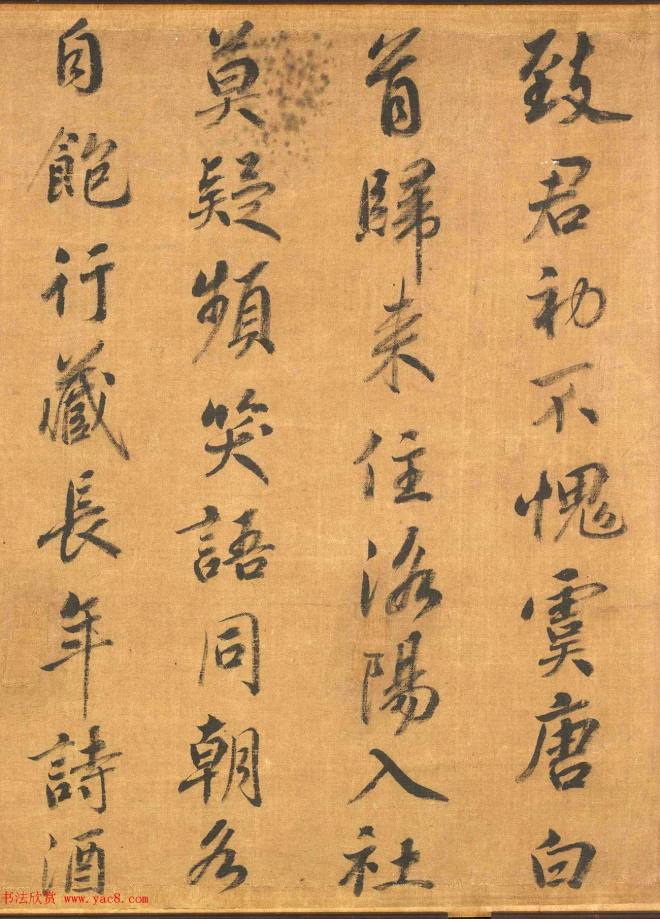 致君初不愧虞唐白
首歸来住洛陽入社
莫疑頻笑語同朝各
自飽行藏長年詩酒
书法欣赏 www.yac8.com